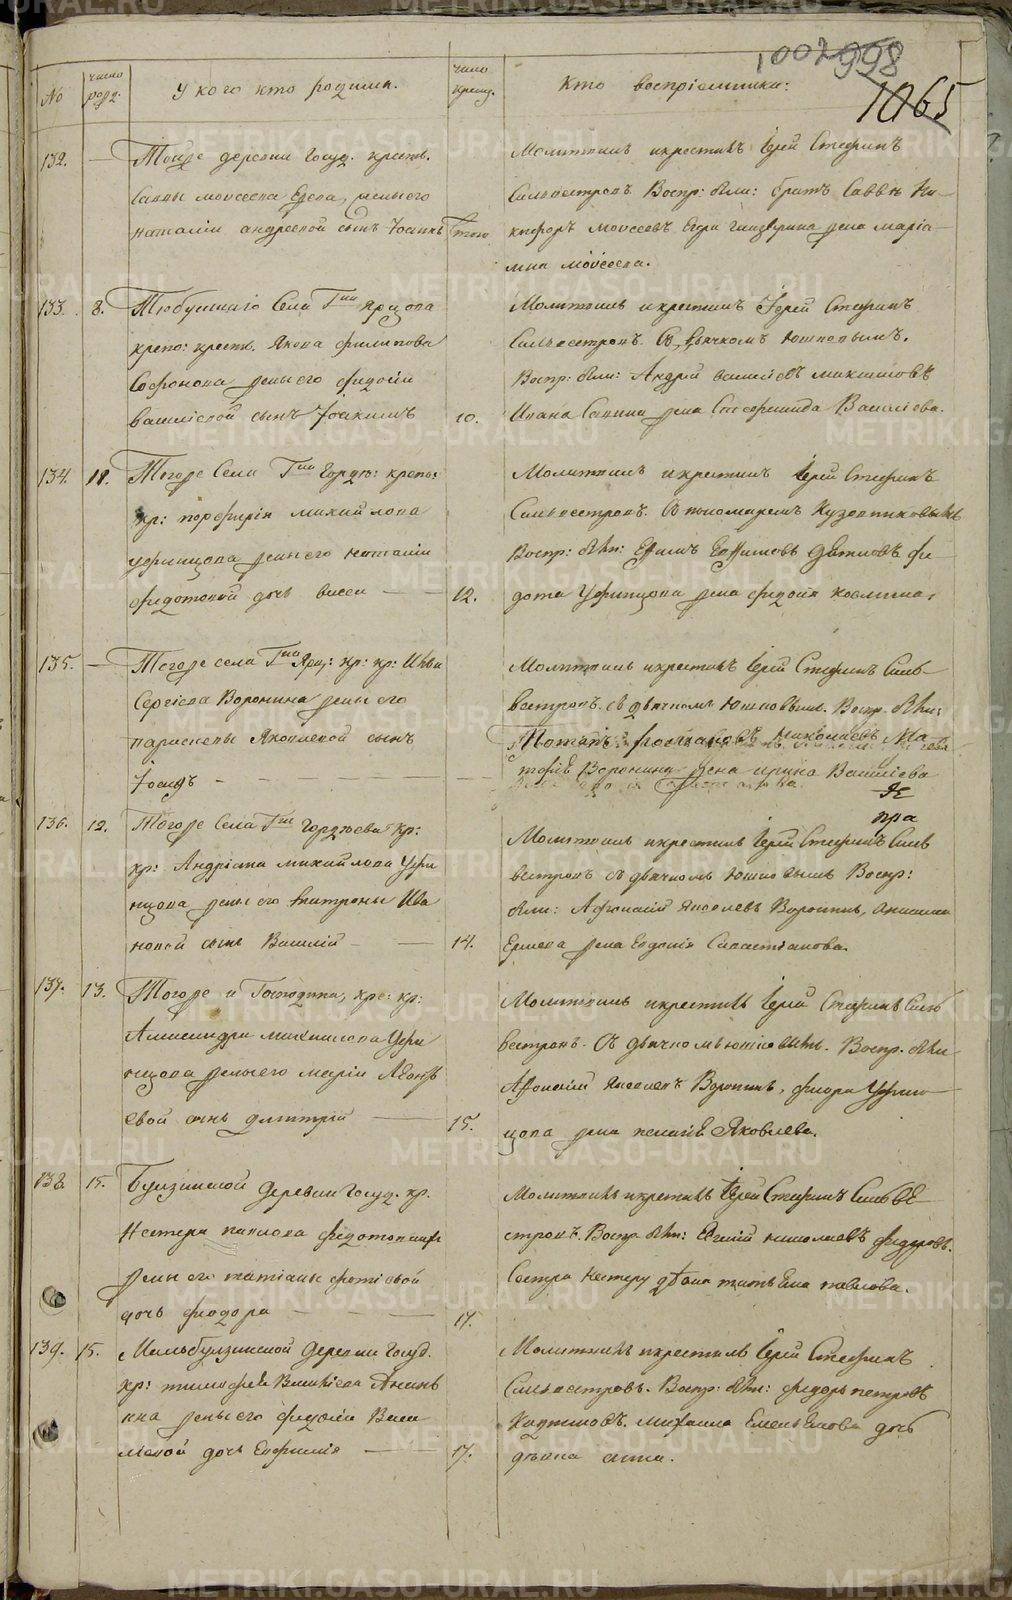 1002 998
1065
No
число родд.
у кого кто родился.
число крещ.
Кто воспріемники:
132.
Тойже деревни Госуд. крестъ.
Саввы моисеева жены его
наталіи андреевой сынъ Іоаннъ
того
Молитвилъ икрестилъ Іерей Стефанъ
Сильвестровъ. Воспр: были: братъ Саввы Ни-
кифоръ Моисеевъ жена маріа-
мна моисеева.
133.
8.
Села Гна Ярцова
крепо: крестъ. Якова филипова
Софонова жены его федосіи
васильевой сынъ Іоакимъ
10.
Молитвилъ икрестилъ Іерей Стефанъ
Сильвестровъ. Съ дьячкомъ Юшковымъ.
Воспр: были: Андрей
Ивана Савина жена Стефанида Васильева.
134.
11.
Тогоже Села Гна Гордѣе: крепо:
кр: порфирія михайлова
уфинцова жены его наталіи
федотовой дочь васса
12.
Молитвилъ икрестилъ Іерей Стефанъ
Сильвестровъ. Съ пономаремъ Кузовниковымъ
Воспр: были: Ефимъ Ефимовъ фе-
дота Уфинцова жена федосія козмина.
135.
Тогоже села Гна Ярц: кр: кр: Ильи
Сергіева Воронина жены его
параскевы Яковлевой сынъ
Іоаннъ
Молитвилъ икрестилъ Іерей Стефанъ Силь-
вестровъ. съ дьячкомъ Юшковымъ. Воспр. были:
Николаевъ Ма
тфѣя Воронина жена ирина Васильева
136.
12.
Тогоже Села Гна Гордѣева кр:
кр: Андріана михайлова Уфи
нцова жены его матроны Ива
новой сынъ Василій
14.
Молитвилъ икрестилъ Іерей Стефанъ Силь
вестровъ съ дьячкомъ Юшковымъ Воспр:
были: Афонасій Яковлевъ Воронинъ,
Ермева жена Евдокія Савастіанова.
137.
13.
Тогоже и Господина, кре: кр:
Александра михайлова Уфи
нцова жены его маріи Леонть
евой сынъ дмитрій
15.
Молитвилъ икрестилъ Іерей Стефанъ Силь
вестровъ. Съ дьячкомъ юшковымъ. Воспр. были
Афонасій Яковлевъ Воронинъ, федора Уфин-
цова жена пелагѣя Яковлева.
138.
15.
Булзинской деревни Госуд. кр.
Нестера павлова
жены его татіаны фотіевой
дочь феодора
17.
Молитвилъ икрестилъ Іерей Стефанъ Сильве-
стровъ. Воспр. были: николаевъ федоровъ.
Сестра Нестеру дѣвка татьяна павлова.
139.
15.
Малобулзинской деревни Госуд.
кр: тимофея Васильева Анань
ина жены его федосіи Васи
льевой дочь Евфимія
17.
Молитвилъ икрестилъ Іерей Стефанъ
Сильвестровъ. Воспр: были: федоръ петровъ
михаила Емельянова дочь
дѣвка анна.